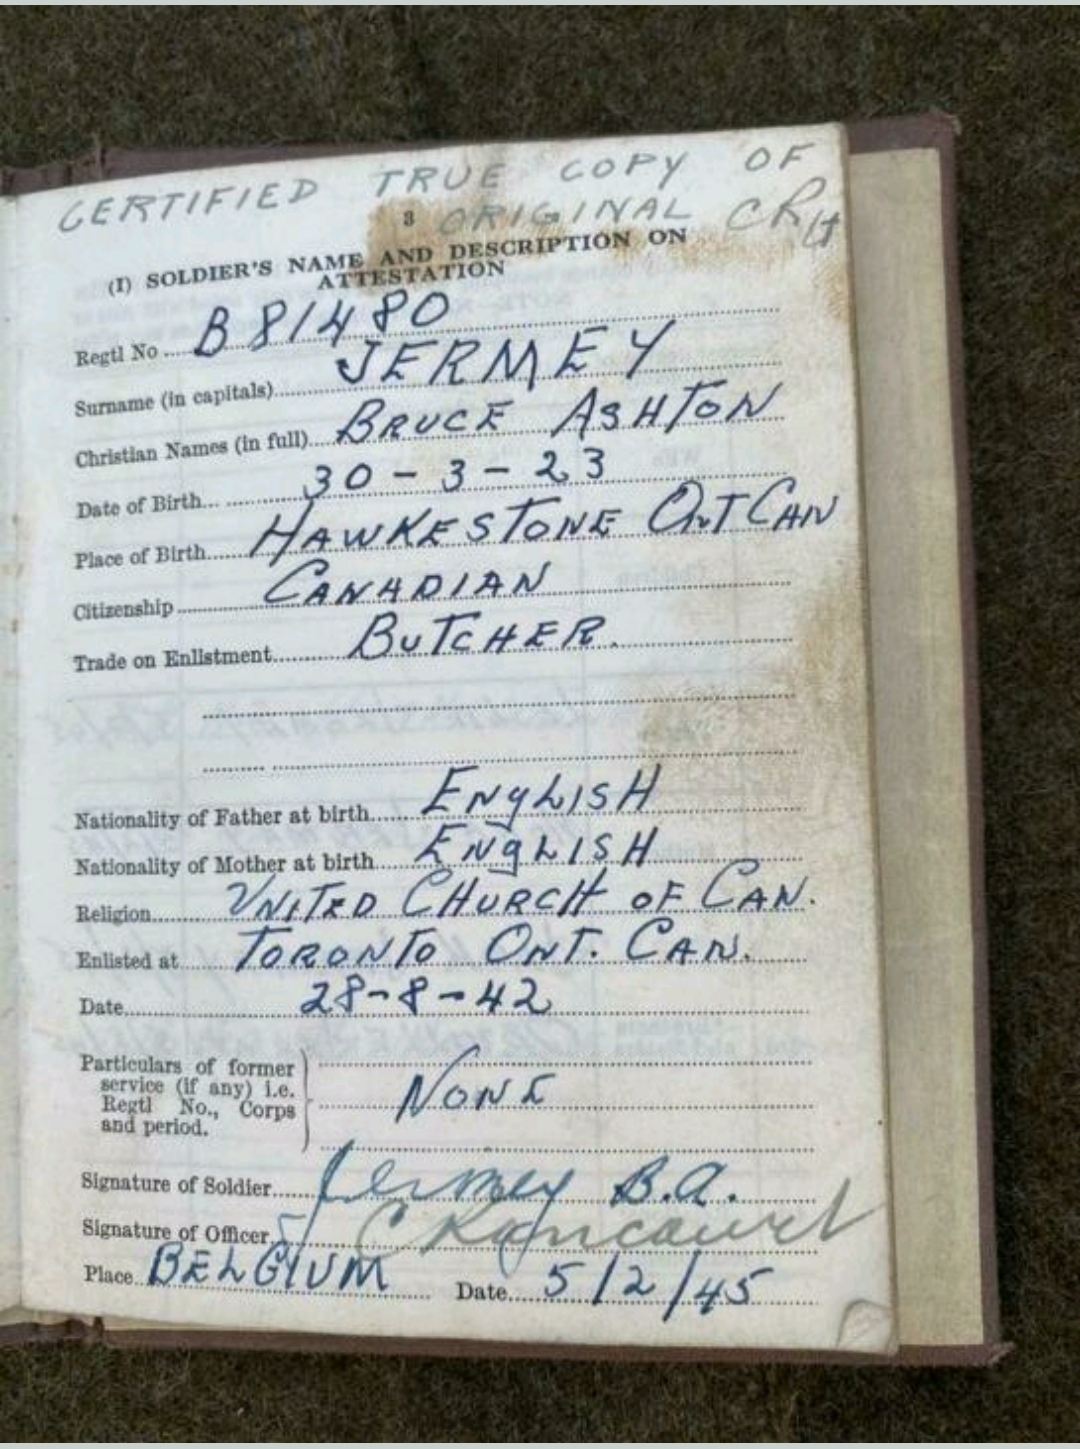 CERTIFIED TRUE COPY OF
3 ORIGINAL
(I) SOLDIER'S NAME AND DESCRIPTION ON
ATTESTATION
Regtl No B81480
Surname (in capitals) JERMEY
Christian Names (in full) BRUCE ASHTON
Date of Birth 30-3-23
Place of Birth HAWKESTONE ONT CAN
Citizenship CANADIAN
Trade on Enlistment BUTCHER.
Nationality of Father at birth ENGLISH
Nationality of Mother at birth ENGLISH
Religion UNITED CHURCH OF CAN.
Enlisted at TORONTO ONT. CAN.
Date 28-8-42
Particulars of former
service (if any) i.e.
Regtl No., Corps
and period.
NONE
Signature of Soldier Jermey B.A.
Signature of Officer
Place BELGIUM Date 5/2/45